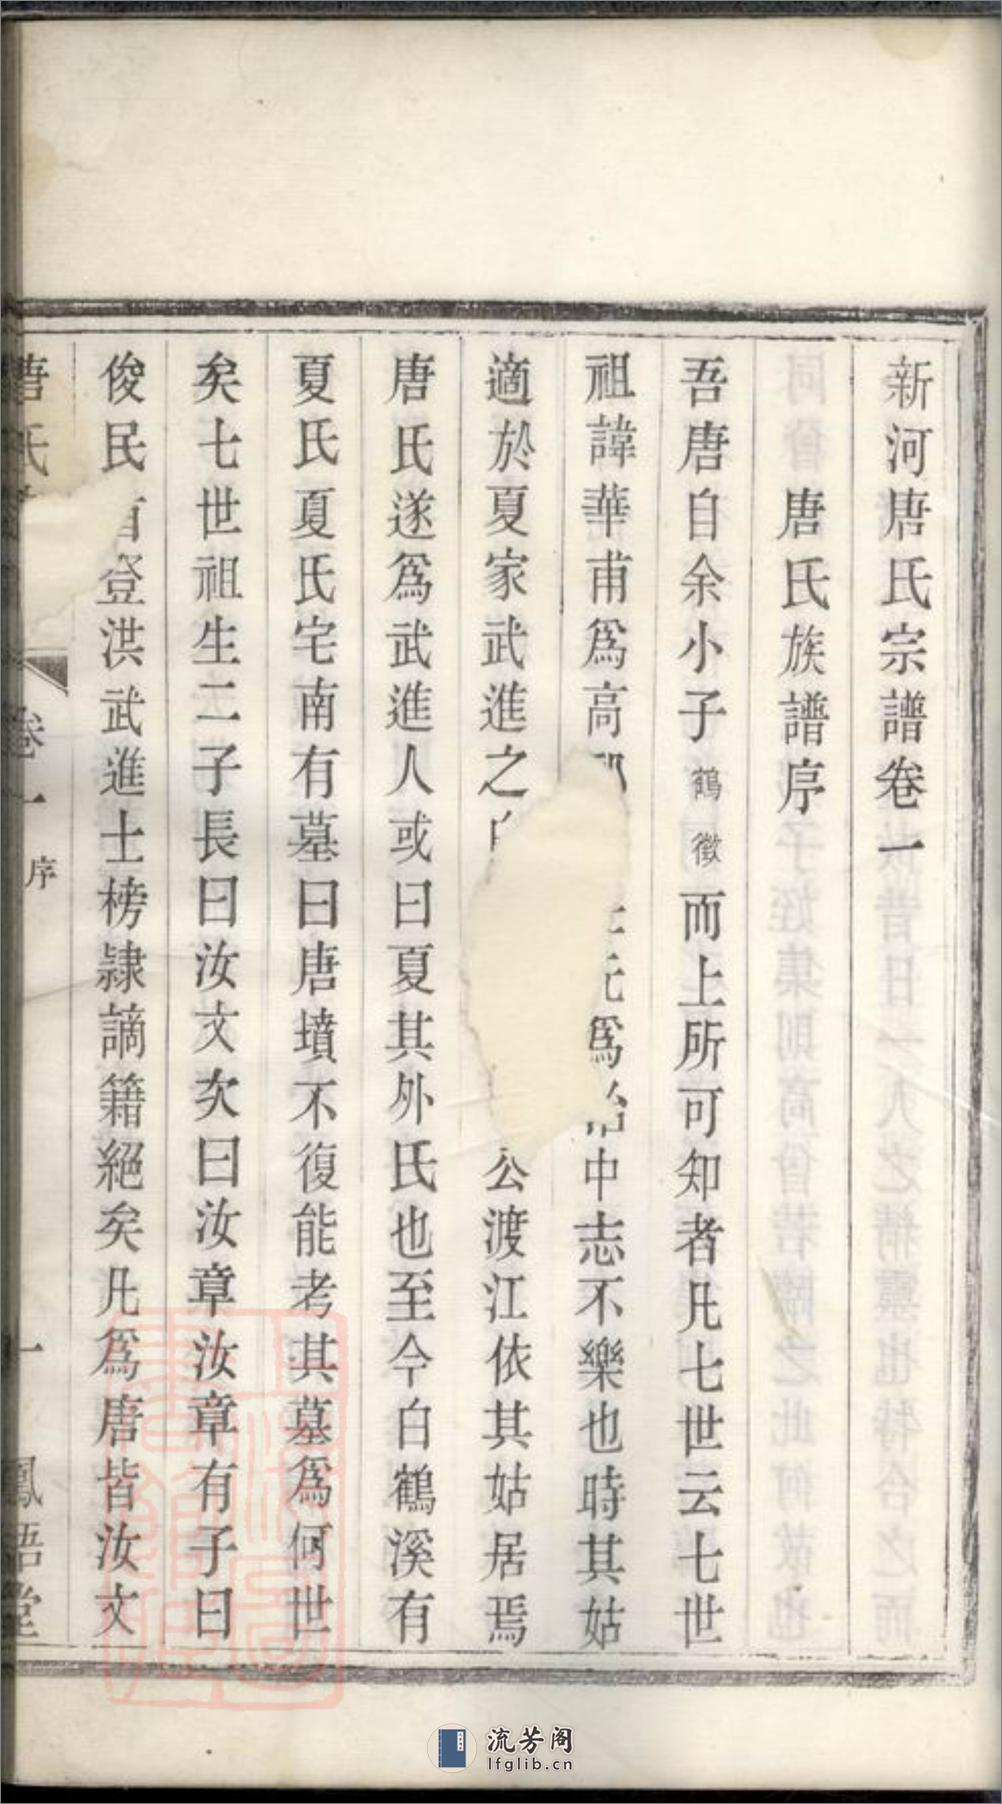 新河唐氏宗譜卷一
唐氏族譜序
吾唐自余小子鶴徵而上所可知者凡七世云七世
祖諱華甫爲高 氏爲 中志不樂也時其姑
適於夏家武進之 公渡江依其姑居焉
唐氏遂爲武進人或曰夏其外氏也至今白鶴溪有
夏氏夏氏宅南有墓曰唐墳不復能考其墓爲何世
矣七世祖生二子長曰汝文次曰汝章汝章有子曰
俊民 登洪武進士榜隷謫籍絕矣凡爲唐皆汝文
唐氏 卷一 序 一 鳳語堂
流芳阁
lfglib.cn